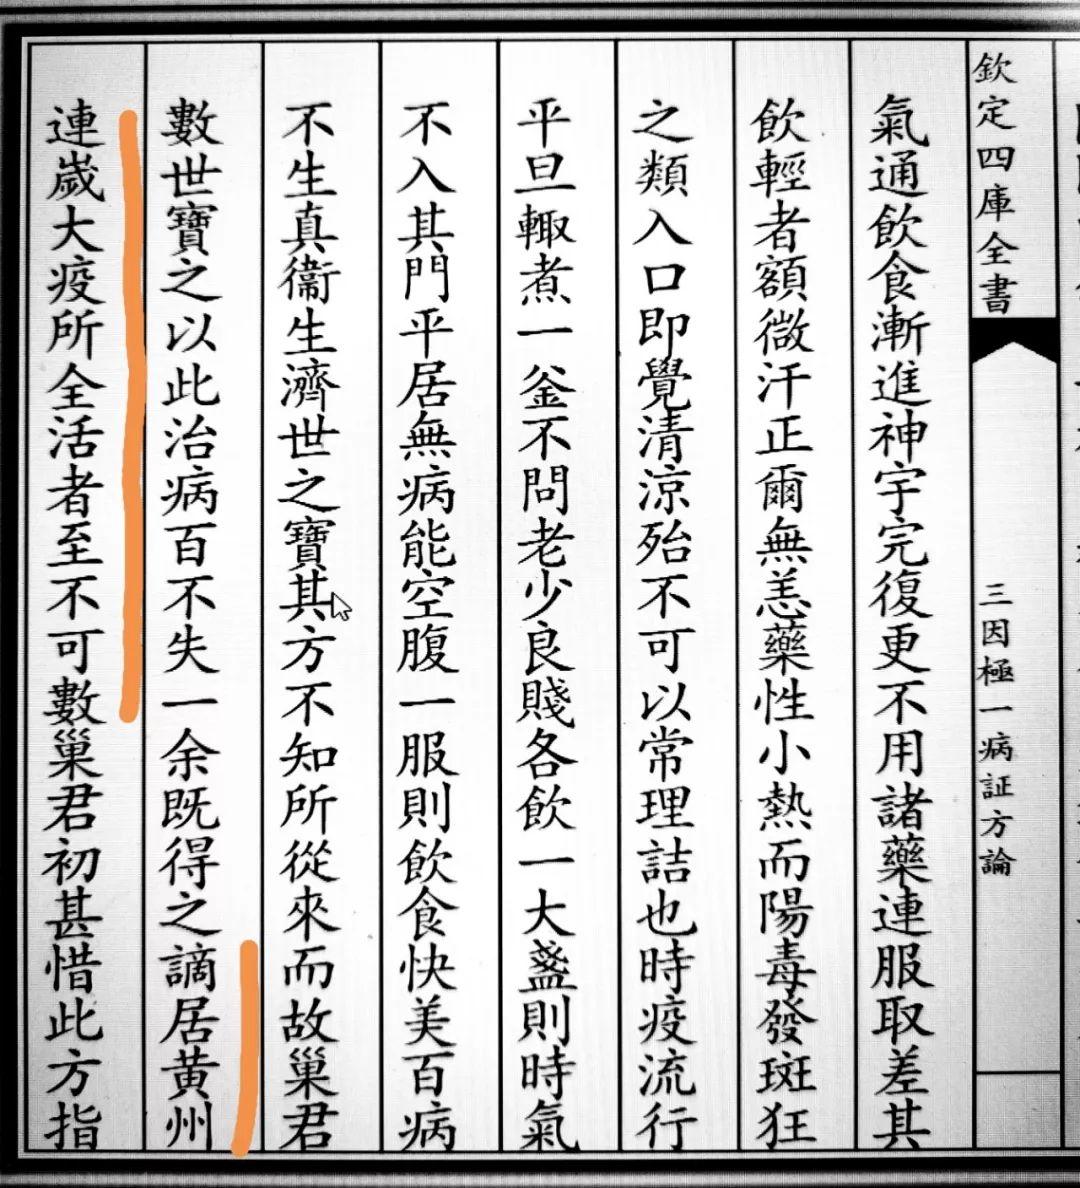 欽定四庫全書
三因極一病証方論
氣通飲食漸進神宇完復更不用諸藥連服取差其
飲輕者額微汗正爾無恙藥性小熱而陽毒發斑狂
之類入口即覺清涼殆不可以常理詰也時疫流行
平旦輙煮一釜不問老少良賤各飲一大盞則時氣
不入其門平居無病能空腹一服則飲食快美百病
不生真衞生濟世之寶其方不知所從來而故巢君
數世寶之以此治病百不失一余既得之謫居黃州
連嵗大疫所全活者至不可數巢君初甚惜此方指